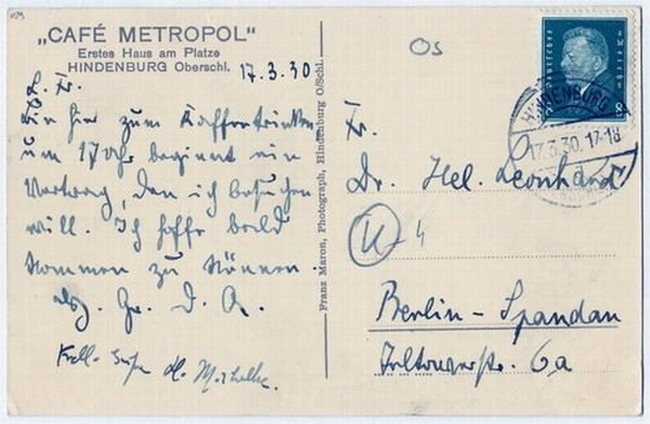 „CAFÉ METROPOL“
Erstes Haus am Platze
HINDENBURG Oberschl.
17.3.30
L. Fr.
Bin hier zum Kaffeetrinken
um 17 Uhr beginnt ein
Vortrag, den ich besuchen
will. Ich hoffe bald
kommen zu können
Gr. D. A.
Franz Maron, Photograph, Hindenburg O/Schl.
Os
HINDENBURG
17.3.30. 17-18
Fr.
Dr. Hel. Leonhard
Berlin - Spandau
6a